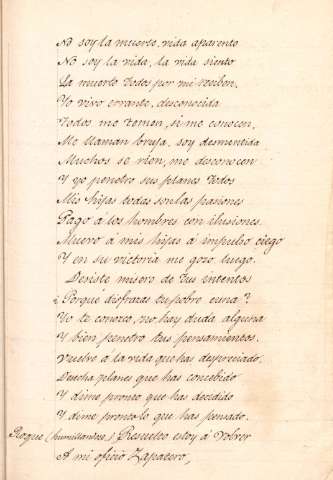 No soy la muerte, vida aparento
No soy la vida, la vida siento
La muerte todos por mi reciben,
Yo vivo errante, desconocida
Todos me temen, si me conocen,
Me llaman bruja, soy desmentida
Muchos se rien, me desconocen
Y yo penetro sus planes todos
Mis hijas todas son las pasiones
Pago á los hombres con ilusiones.
Muevo á mis hijas á impulso ciego
Y en su victoria me gozo luego.
Desiste misero de tus intentos
¿Porqué disfrazas tu pobre cuna?
Yo te conozco, no hay duda alguna
Y bien penetro tus pensamientos.
Vuelve á la vida que has despreciado.
Desecha planes que has concebido
Y dime pronto que has decidido
Y dime pronto lo que has pensado.
Roque (humillandose) Resuelto estoy á volver
A mi oficio Zapatero,